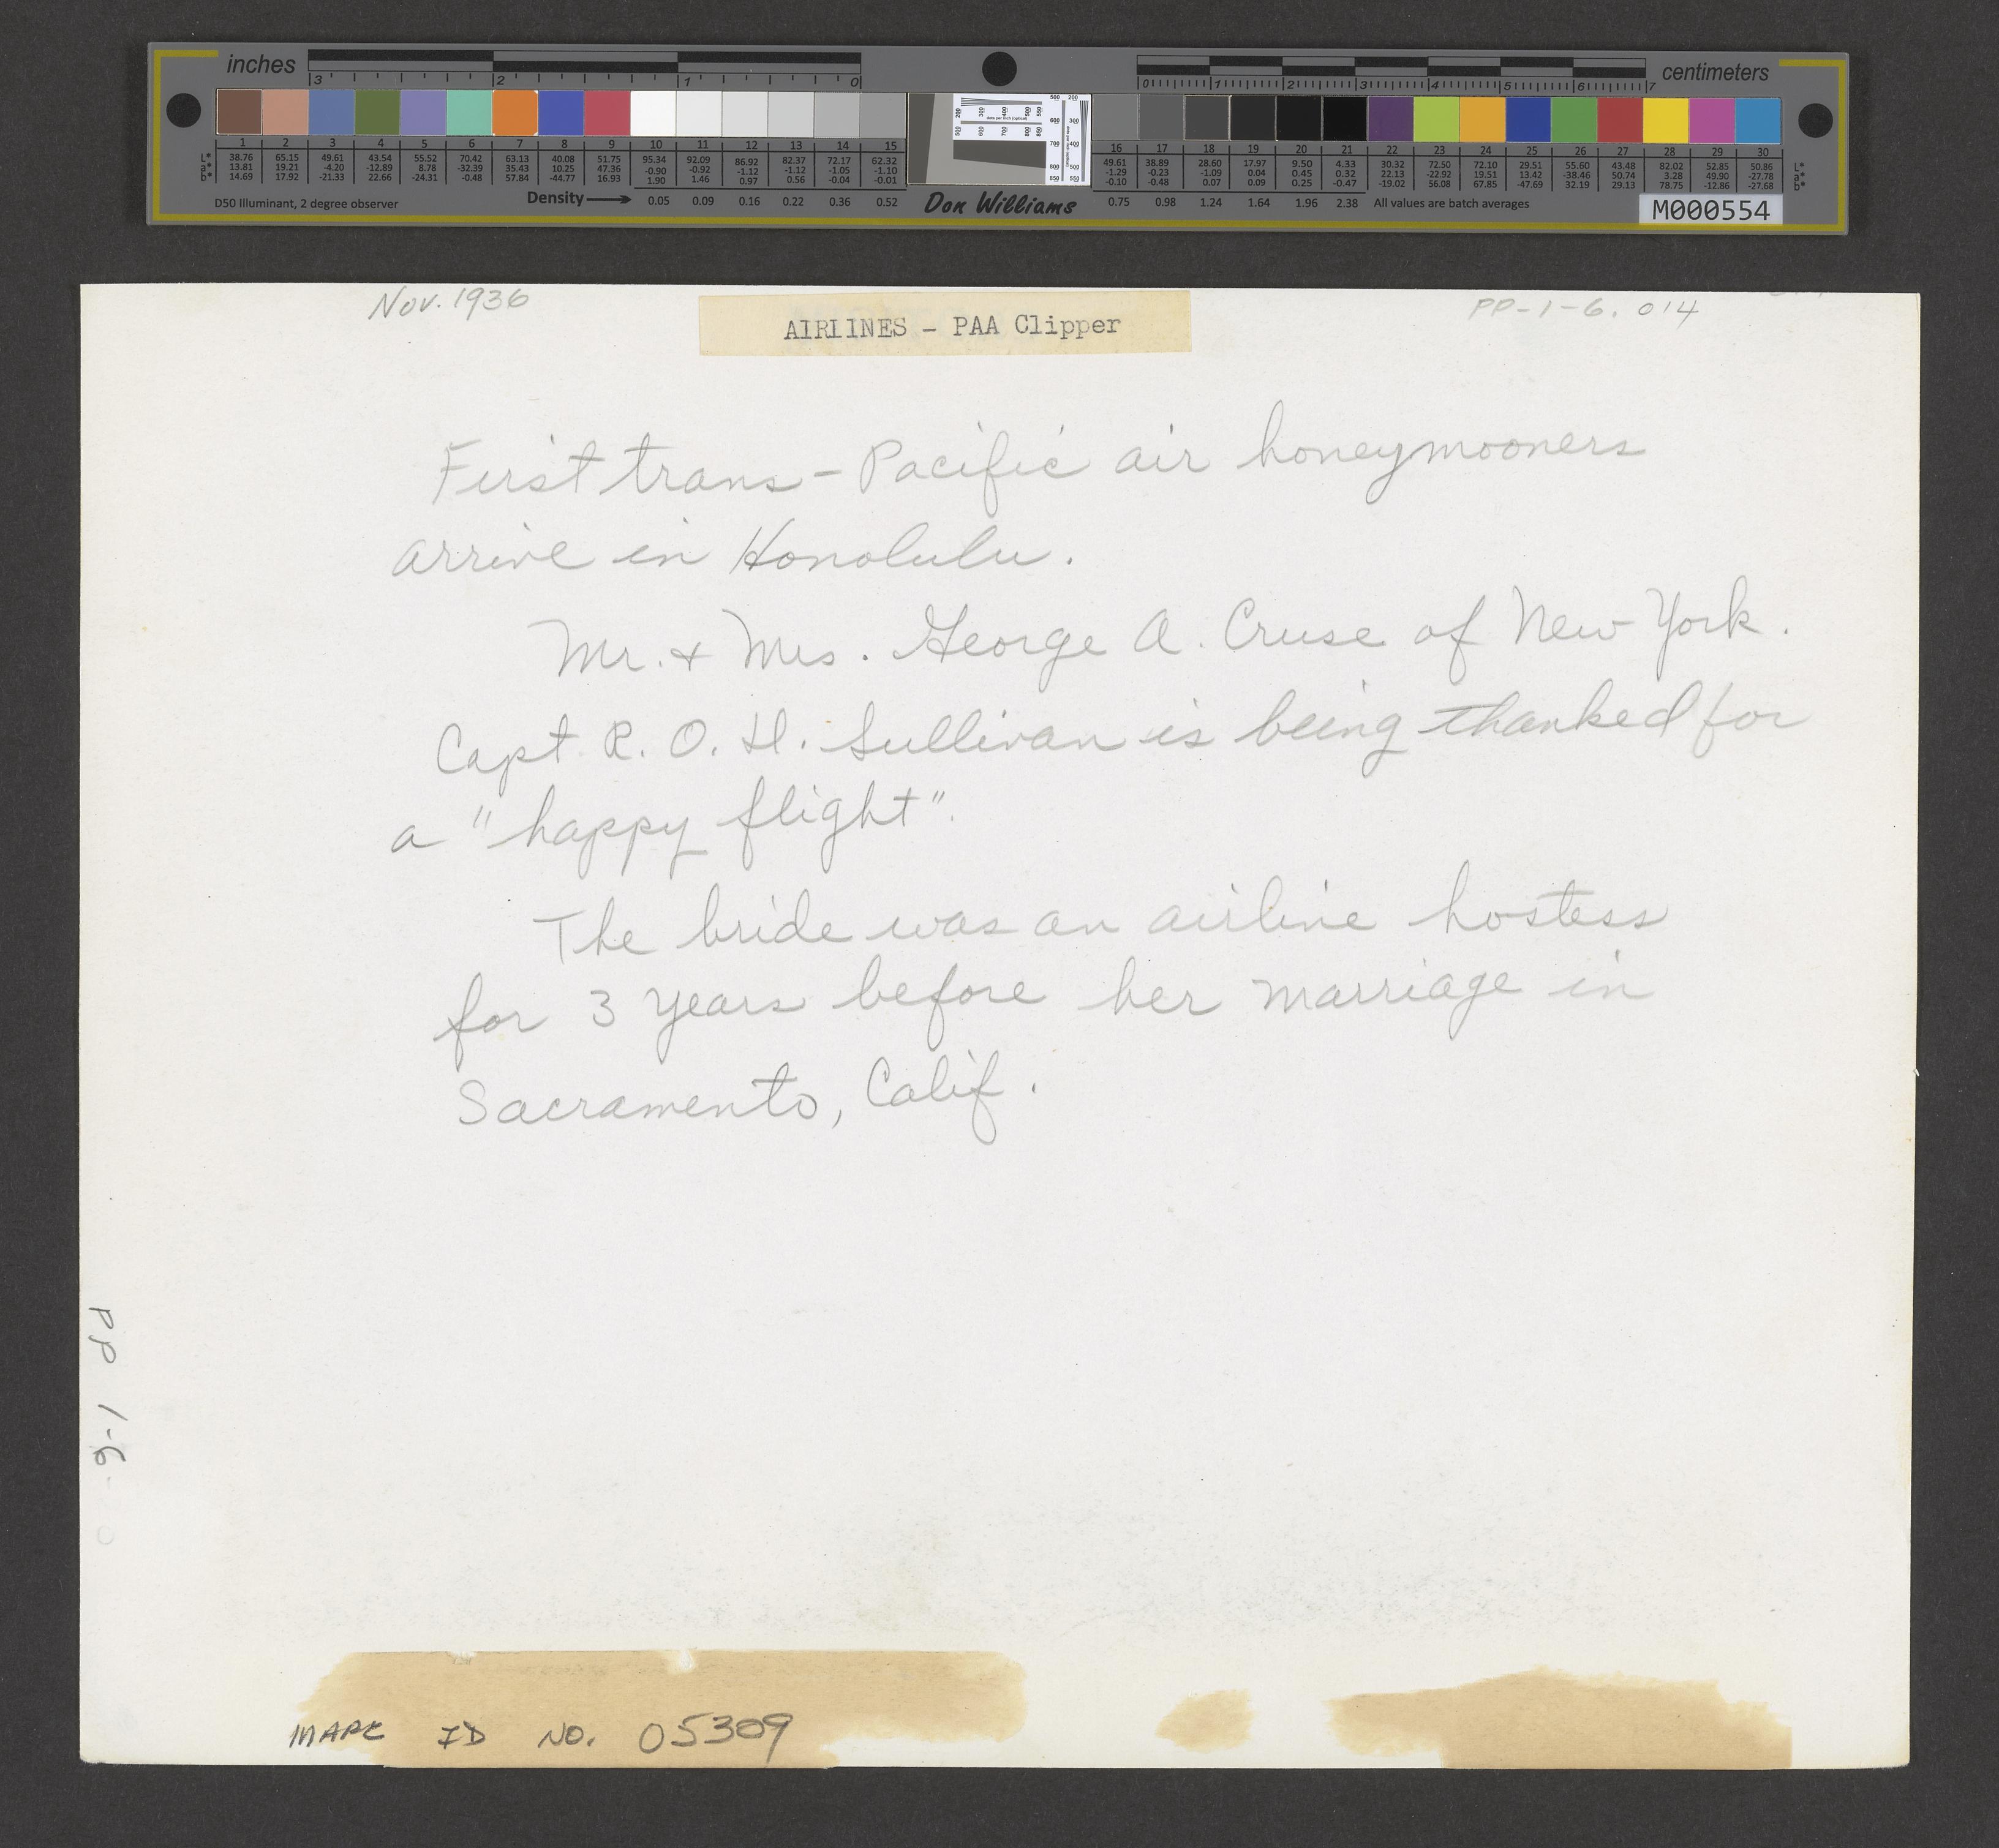 inches
centimeters
3 2 1 0
0 1 2 3 4 5 6 7
1 2 3 4 5 6 7 8 9 10 11 12 13 14 15
L* 38.76 65.15 49.61 43.54 55.52 70.42 63.13 40.08 51.75 95.34 92.09 86.92 82.37 72.17 62.32
a* 13.81 19.21 -4.20 -12.89 8.78 -32.39 35.43 10.25 47.36 -0.90 -0.92 -1.12 -1.12 -1.05 -1.10
b* 14.69 17.92 -21.33 22.66 -24.31 -0.48 57.84 -44.77 16.93 1.90 1.46 0.97 0.56 -0.04 -0.01
D50 Illuminant, 2 degree observer
Density 0.05 0.09 0.16 0.22 0.36 0.52
Don Williams
16 17 18 19 20 21 22 23 24 25 26 27 28 29 30
49.61 38.89 28.60 17.97 9.50 4.33 30.32 72.50 72.10 29.51 55.60 43.48 82.02 52.85 50.86 L*
-1.29 -0.23 -1.09 0.04 0.45 0.32 22.13 -22.92 19.51 13.42 -38.46 50.74 3.28 49.90 -27.78 a*
-0.10 -0.48 0.07 0.09 0.25 -0.47 -19.02 56.08 67.85 -47.69 32.19 29.13 78.75 -12.86 -27.68 b*
0.75 0.98 1.24 1.64 1.96 2.38 All values are batch averages
M000554
Nov. 1936
AIRLINES - PAA Clipper
PP-1-6. 014
First trans-Pacific air honeymooners
arrive in Honolulu.
Mr. + Mrs. George A. Cruse of New York.
Capt. R. O. H. Sullivan is being thanked for
a "happy flight".
The bride was an airline hostess
for 3 years before her marriage in
Sacramento, Calif.
PP 1-6
ID NO. 05309